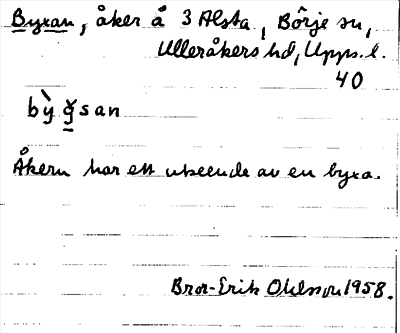 Byxan, åker å 3 Alsta, Börje sn,
Ulleråkers hd, Upps. l.
40
bỳǧsan
Åkern har ett utseende av en byxa.
Bror-Erik Ohlsson 1958.